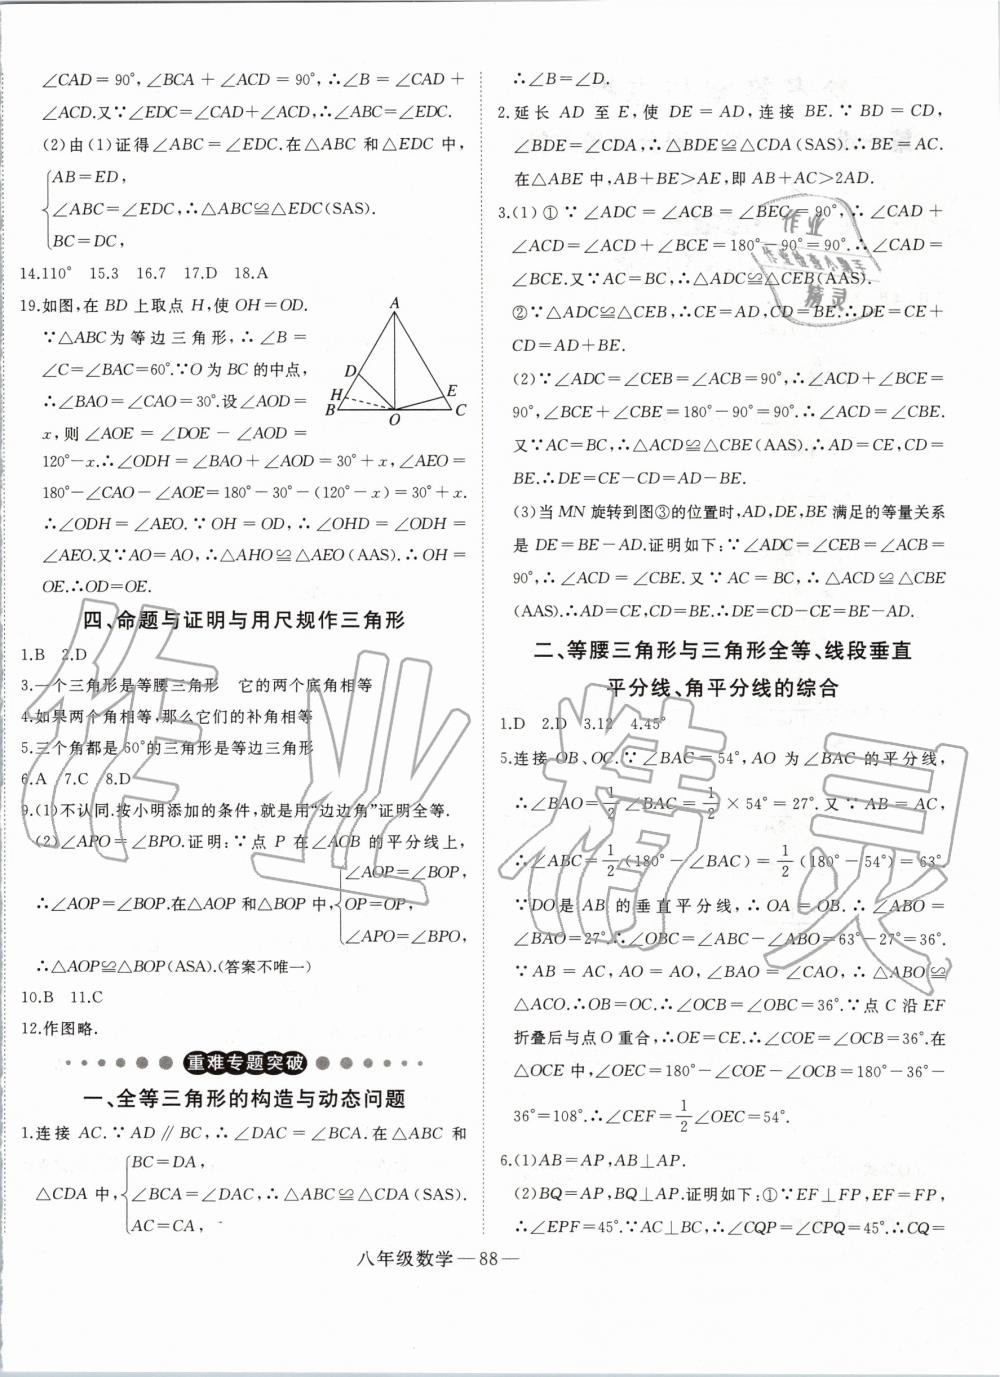 ∠CAD=90°,∠BCA+∠ACD=90°.∴∠B=∠CAD+
∠ACD.又∵∠EDC=∠CAD+∠ACD,∴∠ABC=∠EDC.
(2)由(1)证得∠ABC=∠EDC.在△ABC 和△EDC 中,
AB=ED,
∠ABC=∠EDC,∴△ABC≌△EDC(SAS).
BC=DC,
14.110° 15.3 16.7 17.D 18.A
19.如图,在 BD 上取点 H,使 OH=OD.
∵△ABC为等边三角形,∴∠B=
∠C=∠BAC=60°.∵O 为 BC 的中点,
∴∠BAO=∠CAO=30°.设∠AOD=
x,则∠AOE=∠DOE-∠AOD=
A
D
H
B
O
E
C
120°-x.∴∠ODH=∠BAO+∠AOD=30°+x,∠AEO=
180°-∠CAO-∠AOE=180°-30°-(120°-x)=30°+x.
∴∠ODH=∠AEO.∵OH=OD,∴∠OHD=∠ODH=
∠AEO.又∵AO=AO,∴△AHO≌△AEO(AAS).∴OH=
OE.∴OD=OE.
四、命题与证明与用尺规作三角形
1.B 2.D
3.一个三角形是等腰三角形 它的两个底角相等
4.如果两个角相等,那么它们的补角相等
5.三个角都是60°的三角形是等边三角形
6.A 7.C 8.D
9.(1)不认同.按小明添加的条件,就是用“边边角”证明全等.
(2)∠APO=∠BPO.证明:∵点 P 在∠AOB 的平分线上,
∠AOP=∠BOP,
∴∠AOP=∠BOP.在△AOP和△BOP 中,OP=OP,
∠APO=∠BPO,
∴△AOP≌△BOP(ASA).(答案不唯一)
10.B 11.C
12.作图略.
重难专题突破
一、全等三角形的构造与动态问题
1.连接 AC.∵AD∥BC,∴∠DAC=∠BCA.在△ABC 和
BC=DA,
△CDA 中,∠BCA=∠DAC,∴△ABC≌△CDA(SAS).
AC=CA,
∴∠B=∠D.
2.延长 AD 至 E,使 DE=AD,连接 BE.∵BD=CD,
∠BDE=∠CDA,∴△BDE≌△CDA(SAS).∴BE=AC.
在△ABE 中,AB+BE>AE,即 AB+AC>2AD.
3.(1)①∵∠ADC=∠ACB=∠BEC=90°,∴∠CAD+
∠ACD=∠ACD+∠BCE=180°-90°=90°.∴∠CAD=
∠BCE.又∵AC=BC,∴△ADC≌△CEB(AAS).
②∵△ADC≌△CEB,∴CE=AD,CD=BE.∴DE=CE+
CD=AD+BE.
(2)∵∠ADC=∠CEB=∠ACB=90°,∴∠ACD+∠BCE=
90°,∠BCE+∠CBE=180°-90°=90°.∴∠ACD=∠CBE.
又∵AC=BC,∴△ACD≌△CBE(AAS).∴AD=CE,CD=
BE.∴DE=CE-CD=AD-BE.
(3)当 MN 旋转到图③的位置时,AD,DE,BE 满足的等量关系
是 DE=BE-AD.证明如下:∵∠ADC=∠CEB=∠ACB=
90°,∴∠ACD=∠CBE.又∵AC=BC,∴△ACD≌△CBE
(AAS).∴AD=CE,CD=BE.∴DE=CD-CE=BE-AD.
二、等腰三角形与三角形全等、线段垂直
平分线、角平分线的综合
1.D 2.D 3.12 4.45°
5.连接 OB、OC.∵∠BAC=54°,AO 为∠BAC 的平分线,
∴∠BAO=1/2∠BAC=1/2×54°=27°.又∵AB=AC,
∴∠ABC=1/2(180°-∠BAC)=1/2(180°-54°)=63°.
∵DO是 AB 的垂直平分线,∴OA=OB.∴∠ABO=
∠BAO=27°.∴∠OBC=∠ABC-∠ABO=63°-27°=36°.
∵AB=AC,AO=AO,∠BAO=∠CAO,∴△ABO≌
△ACO.∴OB=OC.∴∠OCB=∠OBC=36°.∵点 C 沿 EF
折叠后与点 O 重合,∴OE=CE.∴∠COE=∠OCB=36°.在
△OCE 中,∠OEC=180°-∠COE-∠OCB=180°-36°-
36°=108°.∴∠CEF=1/2∠OEC=54°.
6.(1)AB=AP,AB⊥AP.
(2)BQ=AP,BQ⊥AP.证明如下:①∵EF⊥FP,EF=FP,
∴∠EPF=45°.∵AC⊥BC,∴∠CQP=∠CPQ=45°.∴CQ=
八年级数学—88—
作业
作业检查小帮手
精灵
作业精灵